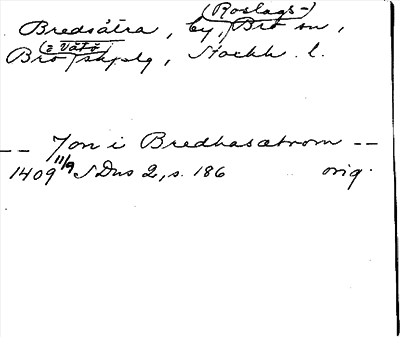 (Roslags-)
Bredsätra, by, Bro sn,
(o Vätö)
Bro skplg, Stockh. l.
-- Jon i Bredhasætrom --
1409 11/9 SDns 2, s. 186 orig.